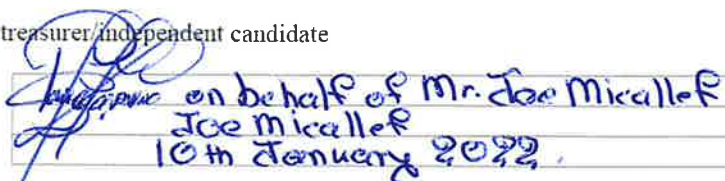 treasurer/independent candidate
on behalf of Mr. Joe Micallef
Joe Micallef
10th January 2022.